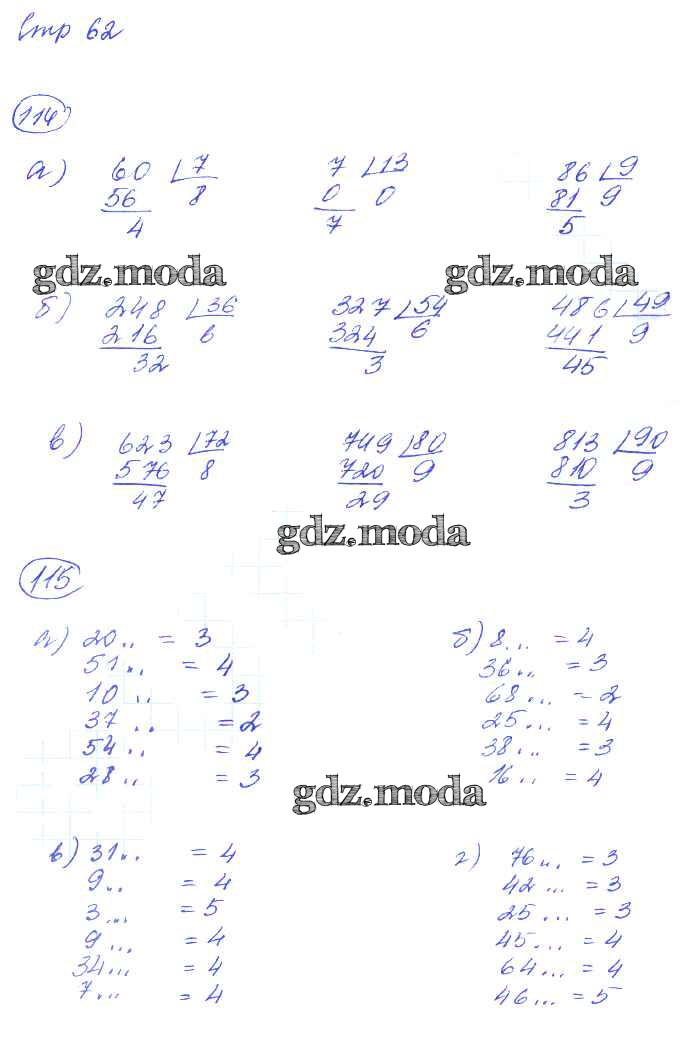 Стр 62
114
а) 60 7 7 13 86 9
56 8 0 0 81 9
4 7 5
gdz.moda gdz.moda
б) 248 36 327 54 486 49
216 6 324 6 441 9
32 3 45
в) 623 72 749 80 813 90
576 8 720 9 810 9
47 29 3
gdz.moda
115
а) 20.. = 3 б) 8... = 4
51.. = 4 36.. = 3
10 .. = 3 68... = 2
37 .. = 2 25... = 4
54 .. = 4 38... = 3
28 .. = 3 16.. = 4
gdz.moda
в) 31.. = 4 г) 76... = 3
9.. = 4 42... = 3
3... = 5 25... = 3
9... = 4 45... = 4
34... = 4 64... = 4
7... = 4 46... = 5